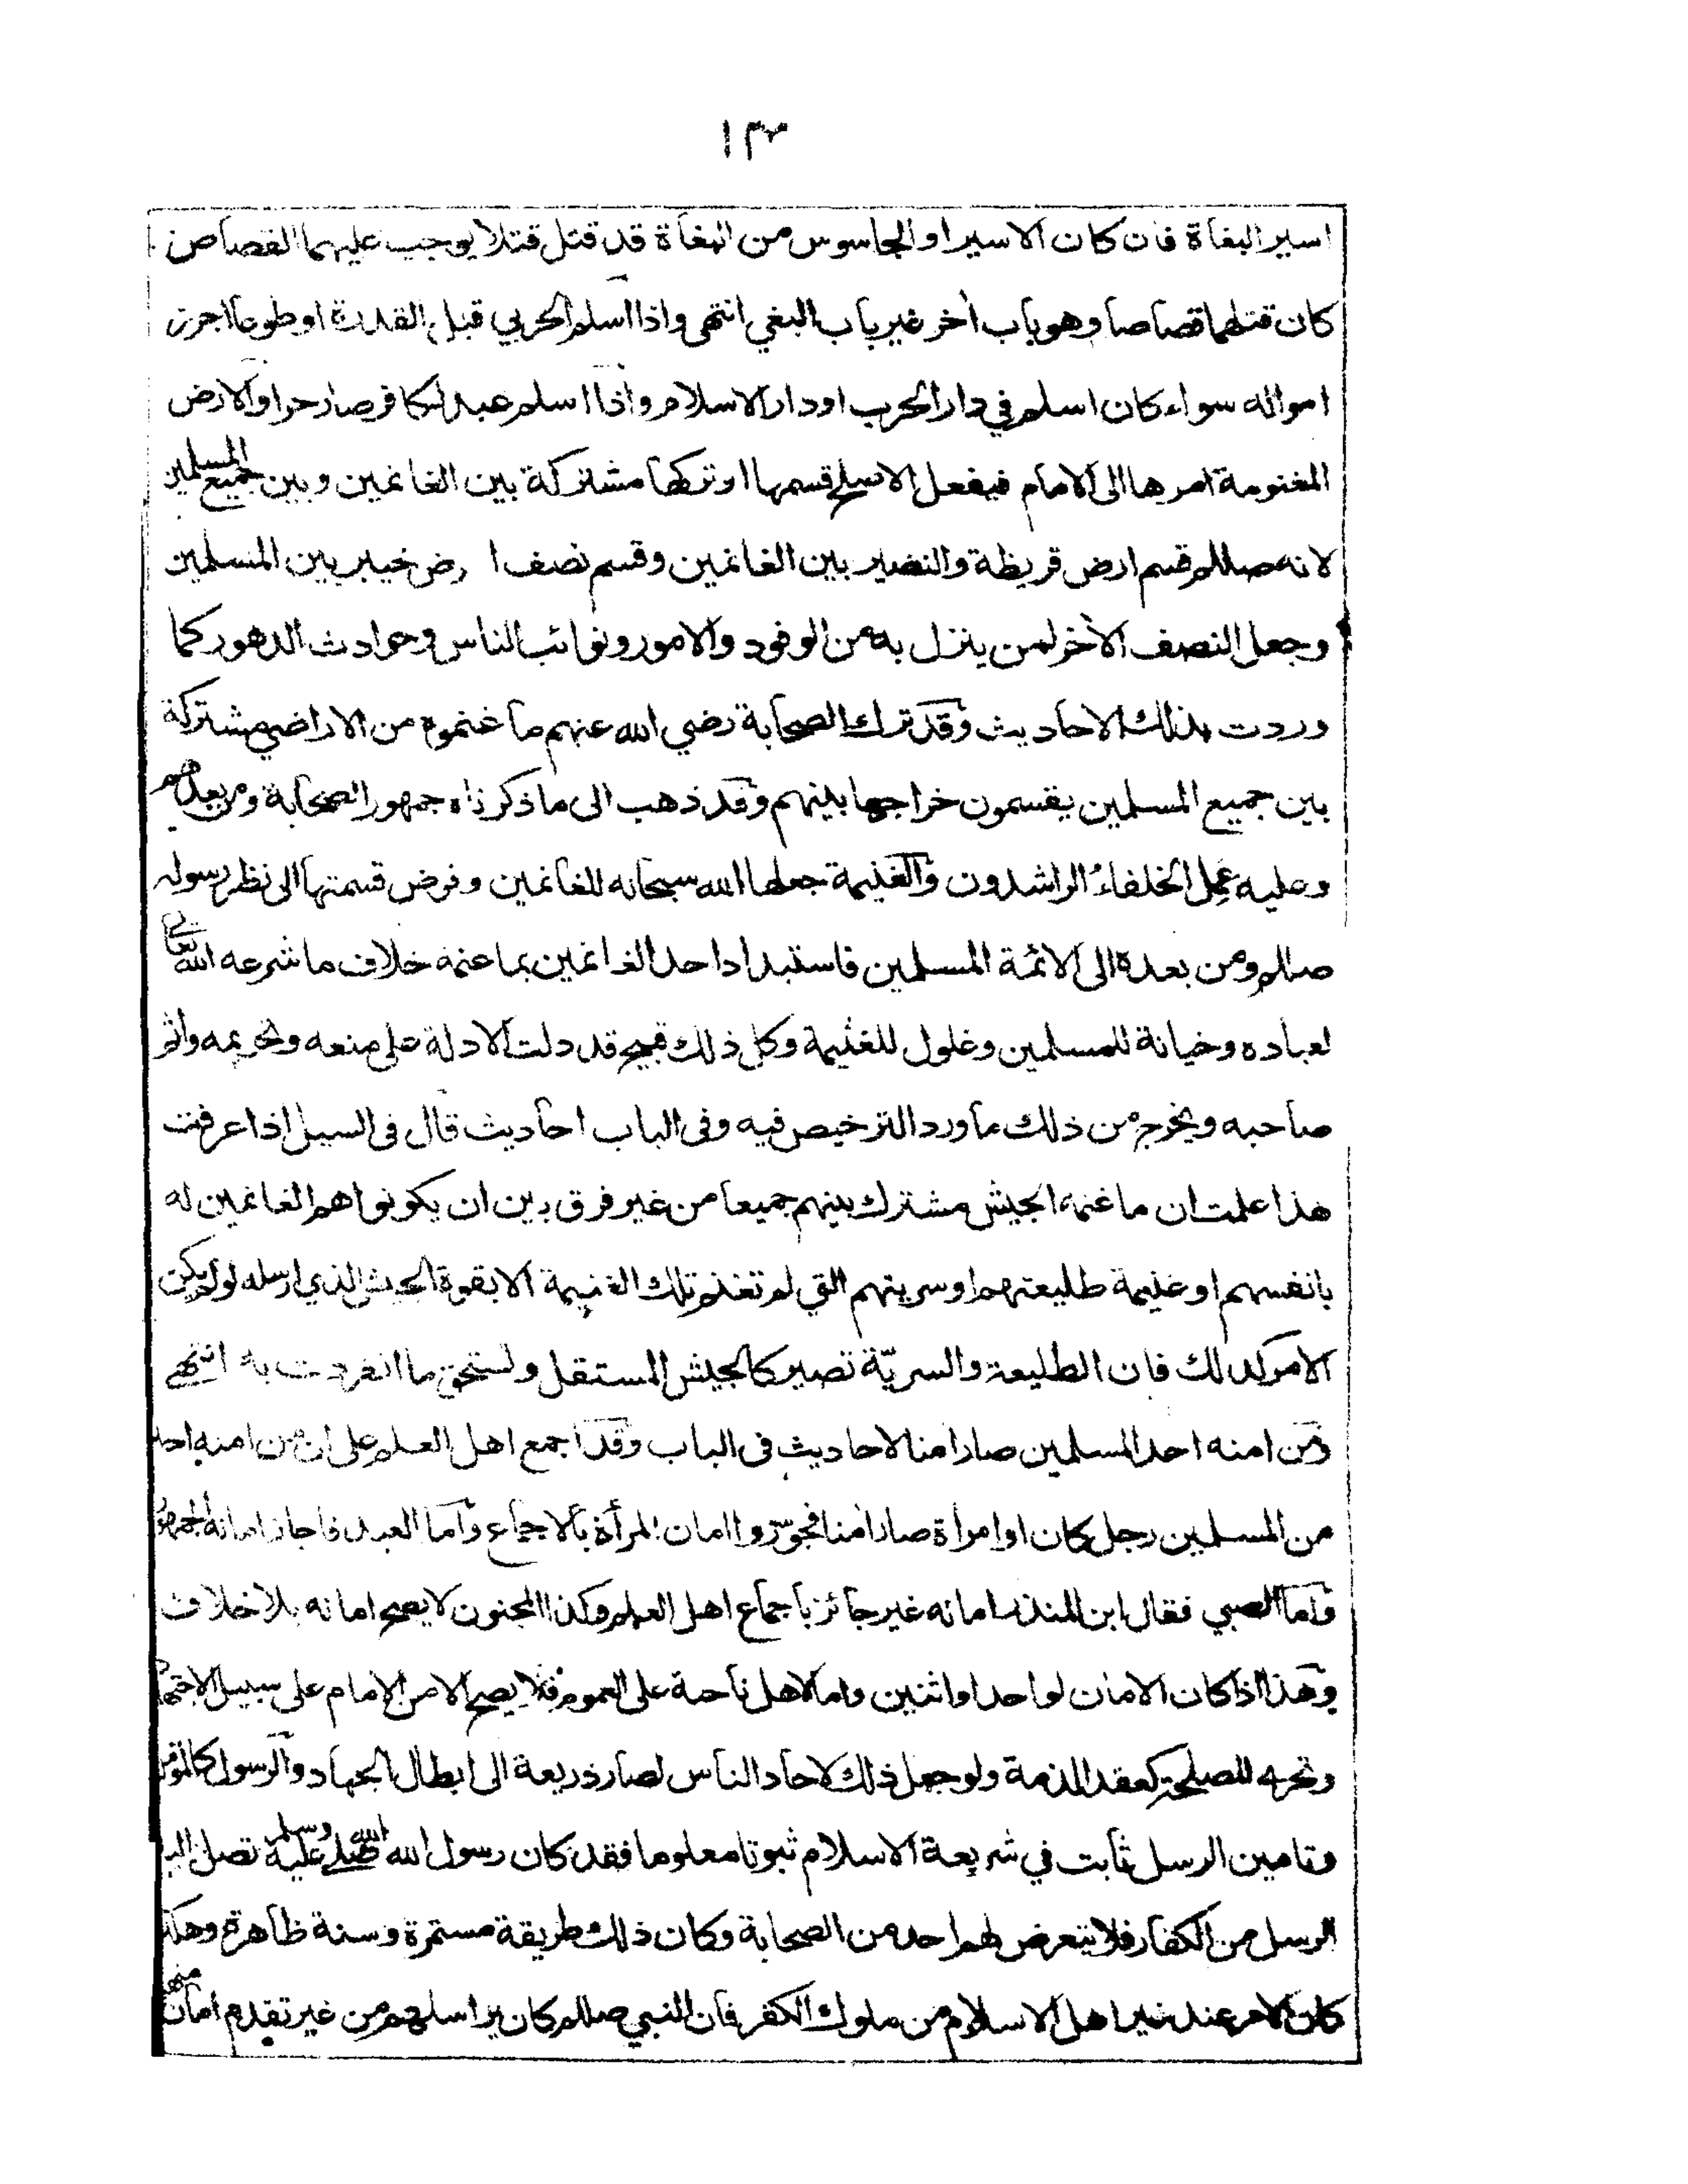 ١٣٢
اسير البغاة فان كان الاسير او الجاسوس من البغاة قد قتل قتلا يوجب عليهما القصاص
كان قتلهما قصاصا وهو باب اخر غير باب البغي انتهى واذا اسلم الحربي قبل القدرة او طوعا احرز
امواله سواء كان اسلم في دار الحرب او دار الاسلام واذا اسلم عبد لكافر صار حرا والارض
المغنومة امرها الى الامام فيفعل الاصلح قسمها او تركها مشتركة بين الغانمين وبين جميع المسلمين
لانه صللم قسم ارض قريظة والنضير بين الغانمين وقسم نصف ا رض خيبر بين المسلمين
وجعل النصف الاخر لمن ينزل به من الوفود والامور ونوائب الناس وحوادث الدهور كما
وردت بذلك الاحاديث وقد ترك الصحابة رضي الله عنهم ما غنموه من الاراضي مشتركة
بين جميع المسلمين يقسمون خراجها بينهم وقد ذهب الى ما ذكرناه جمهور الصحابة ومن بعدهم
وعليه عمل الخلفاء الراشدون والغنيمة جعلها الله سبحانه للغانمين وفرض قسمتها الى نظر رسوله
صللم ومن بعده الى الائمة المسلمين فاستبداد احد الغانمين بما غنمه خلاف ما شرعه الله تعالى
لعباده وخيانة للمسلمين وغلول للغنيمة وكل ذلك قبيح قد دلت الادلة على منعه وتحريمه واثم
صاحبه ويخرج من ذلك ما ورد الترخيص فيه وفى الباب احاديث قال فى السيل اذا عرفت
هذا علمت ان ما غنمه الجيش مشترك بينهم جميعا من غير فرق بين ان يكونوا هم الغانمين له
بانفسهم او غنيمة طليعتهم او سريتهم التي لم تغنم تلك الغنيمة الا بقوة الجيش الذي ارسله لو لم يكن
الامر كذلك فان الطليعة والسريّة تصير كالجيش المستقل وتستحق ما انفردت به انتهى
ومن امنه احد المسلمين صار امنا لاحاديث فى الباب وقد اجمع اهل العلم على ان من امنه احد
من المسلمين رجل كان او امراة صار امنا فجوّزوا امان المرأة بالاجماع واما العبد فاجاز امانه الجمهور
واما الصبي فقال ابن المنذر امانه غير جائز باجماع اهل العلم وكذا المجنون لا يصح امانه بلا خلاف
وهذا اذا كان الامان لواحد او اثنين واما لاهل ناحية على العموم فلا يصح الا من الامام على سبيل الاجتهاد
وتحرى المصلحة كعقد الذمة ولو جعل ذلك لاحاد الناس لصار ذريعة الى ابطال الجهاد والرسول كالمؤمن
وتامين الرسل ثابت في شريعة الاسلام ثبوتا معلوما فقد كان رسول الله صلى الله عليه وسلم تصل اليه
الرسل من الكفار فلا يتعرض لهم احد من الصحابة وكان ذلك طريقة مستمرة وسنة ظاهرة وهكذا
كان الامر عند غير اهل الاسلام من ملوك الكفر فان النبي صللم كان يراسلهم من غير تقدم امان منهم